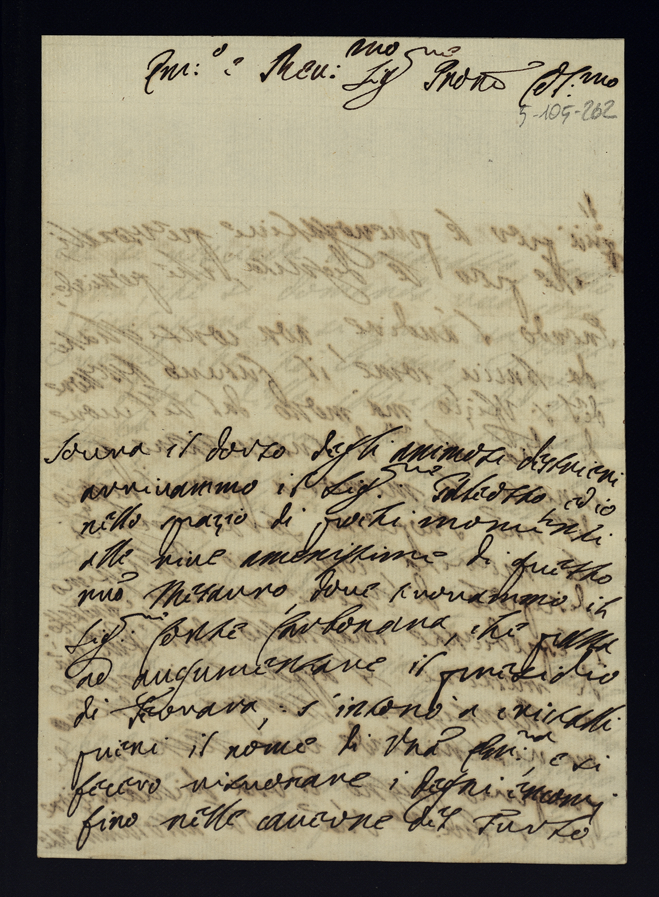 Em:o e Reu:mo Sig.ne Prone Col:mo
5-105-262
Soura il dorso degli animosi destrieri
arriuammo il Sig.ne ed io
nello spazio di pochi momenti
alle riue amenissime di questo
mio Metauro doue trouammo il
Sig.ne Conte Carbonara, che passa
ad augumentare il presidio
di Ferrara, s'intonò a cristalli
pieni il nome di Vra Em:za e si
fecero risuonare i degni encomj
fino nelle cauerne del Furlo